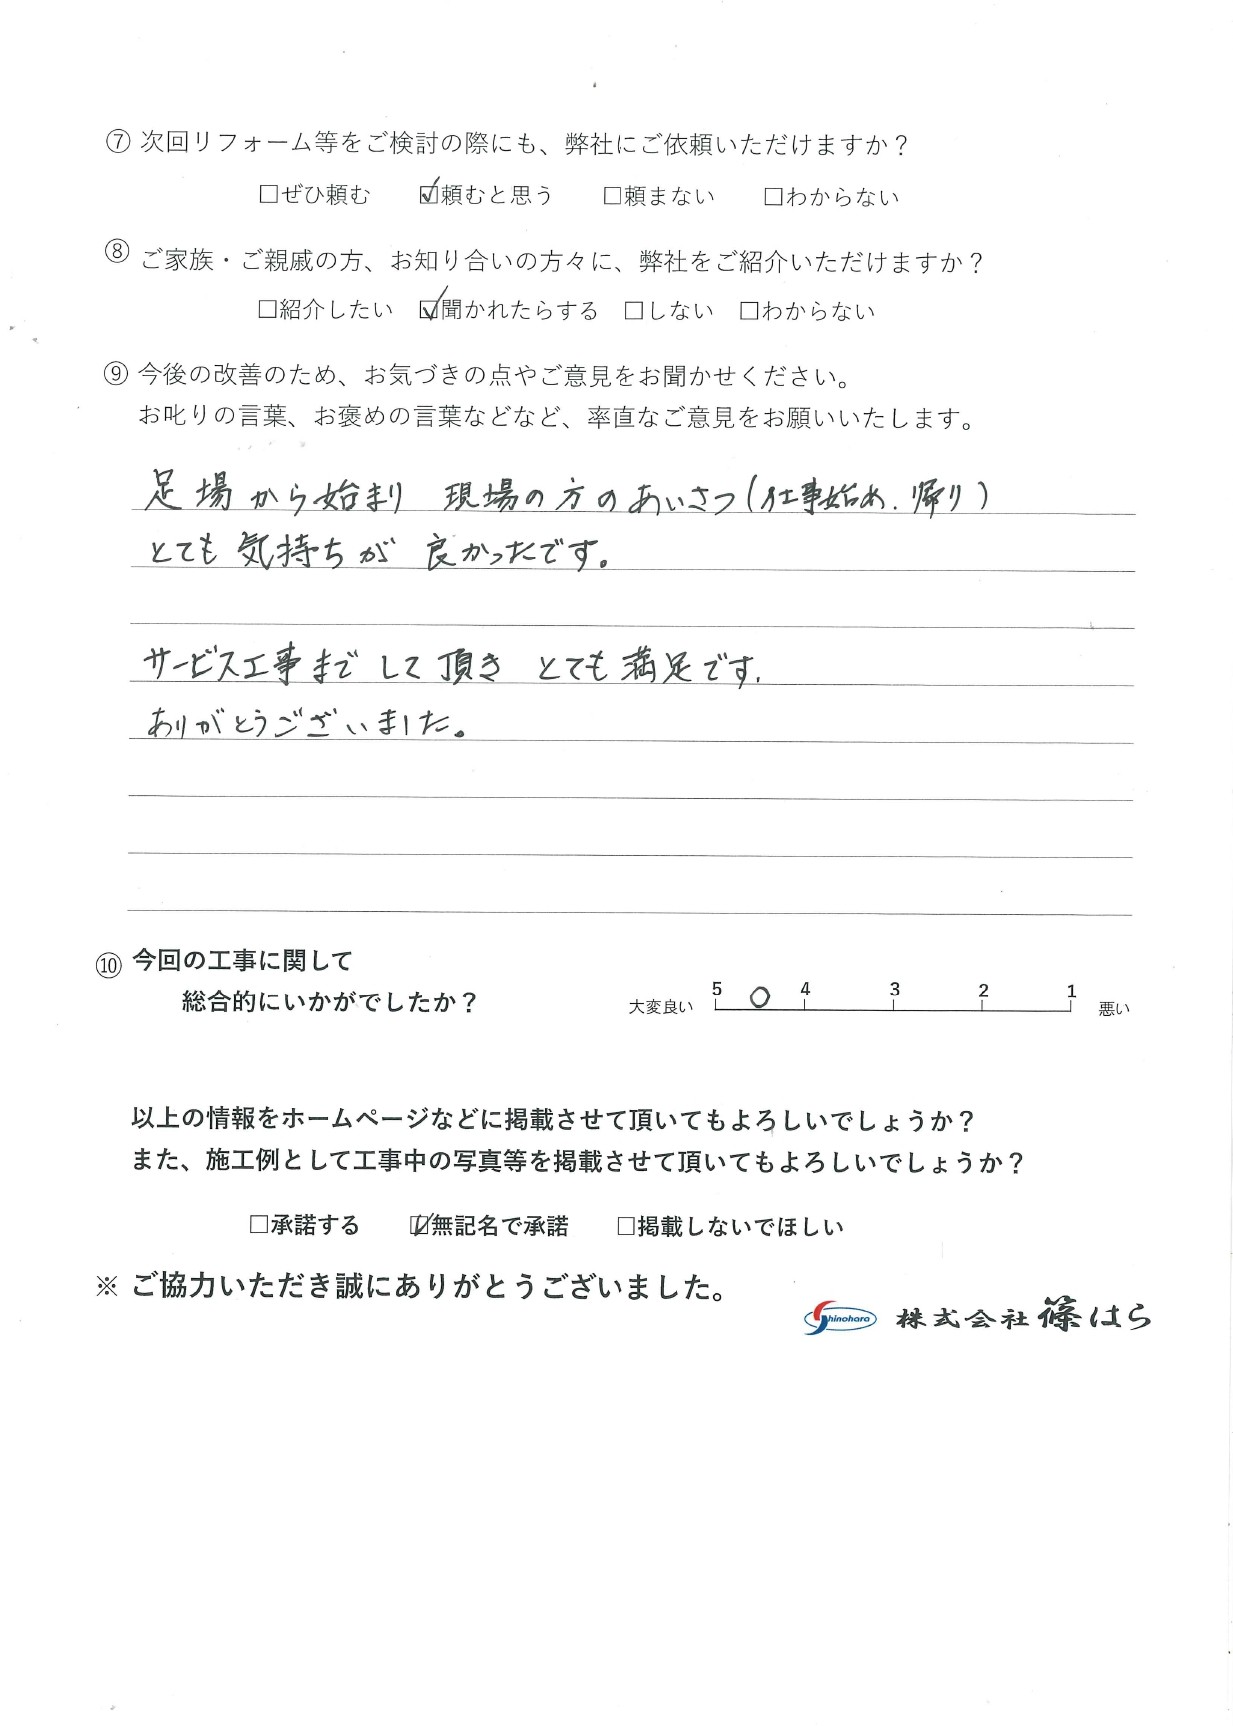 ⑦ 次回リフォーム等をご検討の際にも、弊社にご依頼いただけますか？
□ぜひ頼む ☑頼むと思う □頼まない □わからない
⑧ ご家族・ご親戚の方、お知り合いの方々に、弊社をご紹介いただけますか？
□紹介したい ☑聞かれたらする □しない □わからない
⑨ 今後の改善のため、お気づきの点やご意見をお聞かせください。
お叱りの言葉、お褒めの言葉などなど、率直なご意見をお願いいたします。
足場から始まり 現場の方のあいさつ(仕事始め.帰り)
とても気持ちが 良かったです。
サービス工事まで して頂き とても満足です.
ありがとうございました。
⑩ 今回の工事に関して
総合的にいかがでしたか？
大変良い 5 ○ 4 3 2 1 悪い
以上の情報をホームページなどに掲載させて頂いてもよろしいでしょうか？
また、施工例として工事中の写真等を掲載させて頂いてもよろしいでしょうか？
□承諾する ☑無記名で承諾 □掲載しないでほしい
※ ご協力いただき誠にありがとうございました。
Shinohara 株式会社 篠はら